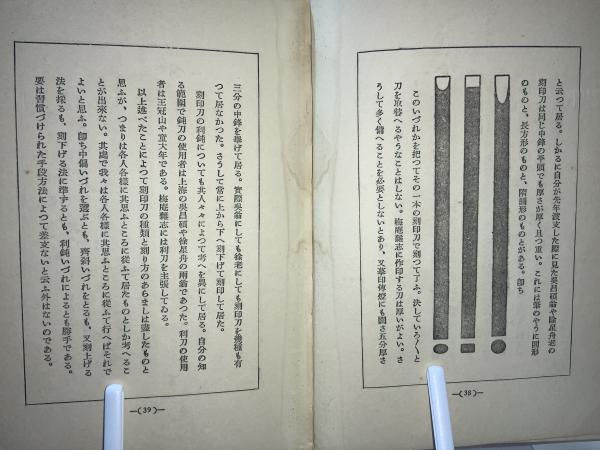 と云つて居る。しかるに自分が先年渡支した際に見た呉昌碩翁や徐星舟老の
刻印刀は同じ中鋒の平頭でも厚さが厚く且つ重い。これには筆のやうに円形
のものと、長方形のものと、隋円形のものとがある。即ち
このいづれかを把つてその一本の刻印刀で刻つて了ふ。決していろ〱と
刀を取替へるやうなことはしない。梅庵雑志に作印する刀は厚いがよい。さ
うして多く備へることを必要としないとあり、又摹印伝燈にも闊さ五分厚さ
—(38)—
三分の中鋒を挙げて居る。実際呉翁にしても徐老にしても刻印刀を幾種も有
つて居なかつた。さうして常に上から下へ刻下げて刻印して居た。
刻印刀の利鈍についても其人々によつて考へを異にして居る。自分の知
る範囲で鈍刀の使用者は上海の呉昌碩や徐星舟の両翁であつた。利刀の使用
者は王冠山や童大年である。梅庵雑志には利刀を主張してゐる。
以上述べたことによつて刻印刀の種類と刻り方のあらましは尽したものと
思ふが、つまりは各人各様に其思ふところに従ふて居たものとしか考へるこ
とが出来ない。其処で我々は各人各様に其思ふところに従ふて行へばそれで
よいと思ふ。即ち中偏いづれを選ぶとも、斉斜いづれをとるも、又刻上げる
法を採るも、刻下げる法に準ずるとも、利鈍いづれによるとも勝手である。
要は習慣づけられた手段方法によつて差支ないと云ふ外はないのである。
—(39)—